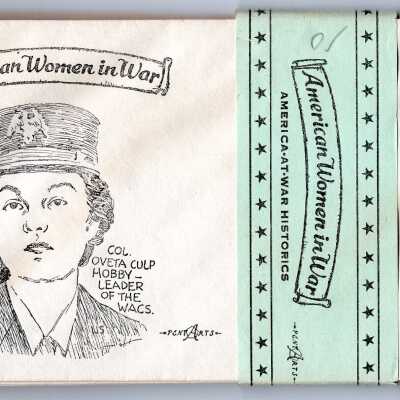 an Women in War
COL.
OVETA CULP
HOBBY —
LEADER
OF THE
WACS.
US
PENT ARTS
10
American Women in War
AMERICA-AT-WAR HISTORICS
PENT ARTS